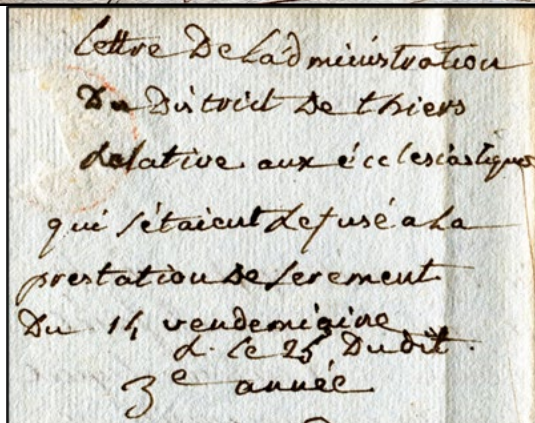 Lettre De L'administration
Du District De thiers
Relative aux écclesiastiques
qui s'étaient Refusé a La
prestation De Serement
Du 14 vendemiaire
R. le 25 Dudit.
3e année